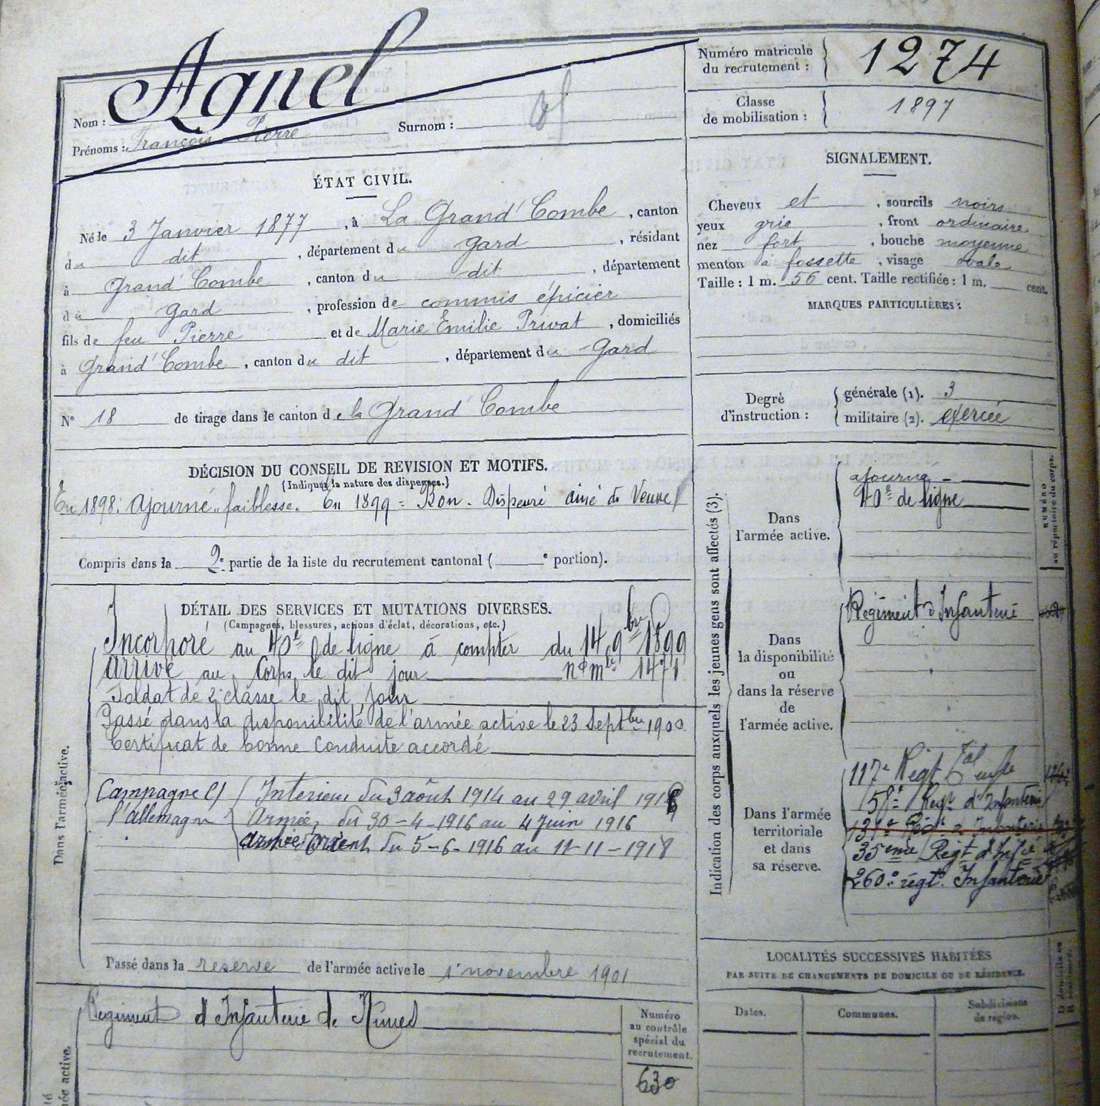 Nom : Agnel
Prénoms : François Pierre
Surnom :
Numéro matricule
du recrutement : 1274
Classe
de mobilisation : 1897
ÉTAT CIVIL.
Né le 3 Janvier 1877, à La Grand'Combe, canton
du dit, département du Gard, résidant
à Grand'Combe, canton du dit, département
du Gard, profession de commis épicier
fils de feu Pierre et de Marie Emilie Privat, domiciliés
à Grand'Combe, canton du dit, département du Gard
N° 18 de tirage dans le canton de la Grand'Combe
SIGNALEMENT.
Cheveux et, sourcils noirs
yeux gris, front ordinaire
nez fort, bouche moyenne
menton à fossette, visage ovale
Taille : 1 m. 56 cent. Taille rectifiée : 1 m. cent.
MARQUES PARTICULIÈRES :
Degré
d'instruction :
générale (1). 3
militaire (2). exercée
DÉCISION DU CONSEIL DE REVISION ET MOTIFS.
(Indiquer la nature des dispenses.)
En 1898 : Ajourné faiblesse. En 1899 = Bon. Dispensé ainé de Veuve
Compris dans la 2e partie de la liste du recrutement cantonal ( e portion).
DÉTAIL DES SERVICES ET MUTATIONS DIVERSES.
(Campagnes, blessures, actions d'éclat, décorations, etc.)
Dans l'armée active.
Incorporé au 40e de ligne à compter du 14 9bre 1899
arrivé au Corps le dit jour n° mle 1471
Soldat de 2e classe le dit jour
Passé dans la disponibilité de l'armée active le 23 Septbre 1900
Certificat de bonne Conduite accordé
Campagne C/
l'allemagne
Interieur du 3 août 1914 au 29 avril 1916
Armées du 30-4-1916 au 4 Juin 1916
armée Orient du 5-6-1916 au 11-11-1918
Passé dans la reserve de l'armée active le 1 novembre 1901
Régiment d'Infanterie de Nimes
Numéro
au contrôle
spécial du
recrutement.
630
Indication des corps auxquels les jeunes gens sont affectés (3).
Dans
l'armée active.
ajourné
40e de ligne
NUMÉRO
au répertoire du corps.
Dans
la disponibilité
ou
dans la réserve
de
l'armée active.
Régiment d'Infanterie
Dans l'armée
territoriale
et dans
sa réserve.
117e Régt Tal Infie
58e Regt d'Infanterie
35eme Regt d'Infie
260e régt Infanterie
LOCALITÉS SUCCESSIVES HABITÉES
PAR SUITE DE CHANGEMENTS DE DOMICILE OU DE RÉSIDENCE.
Dates.
Communes.
Subdivisions
de région.